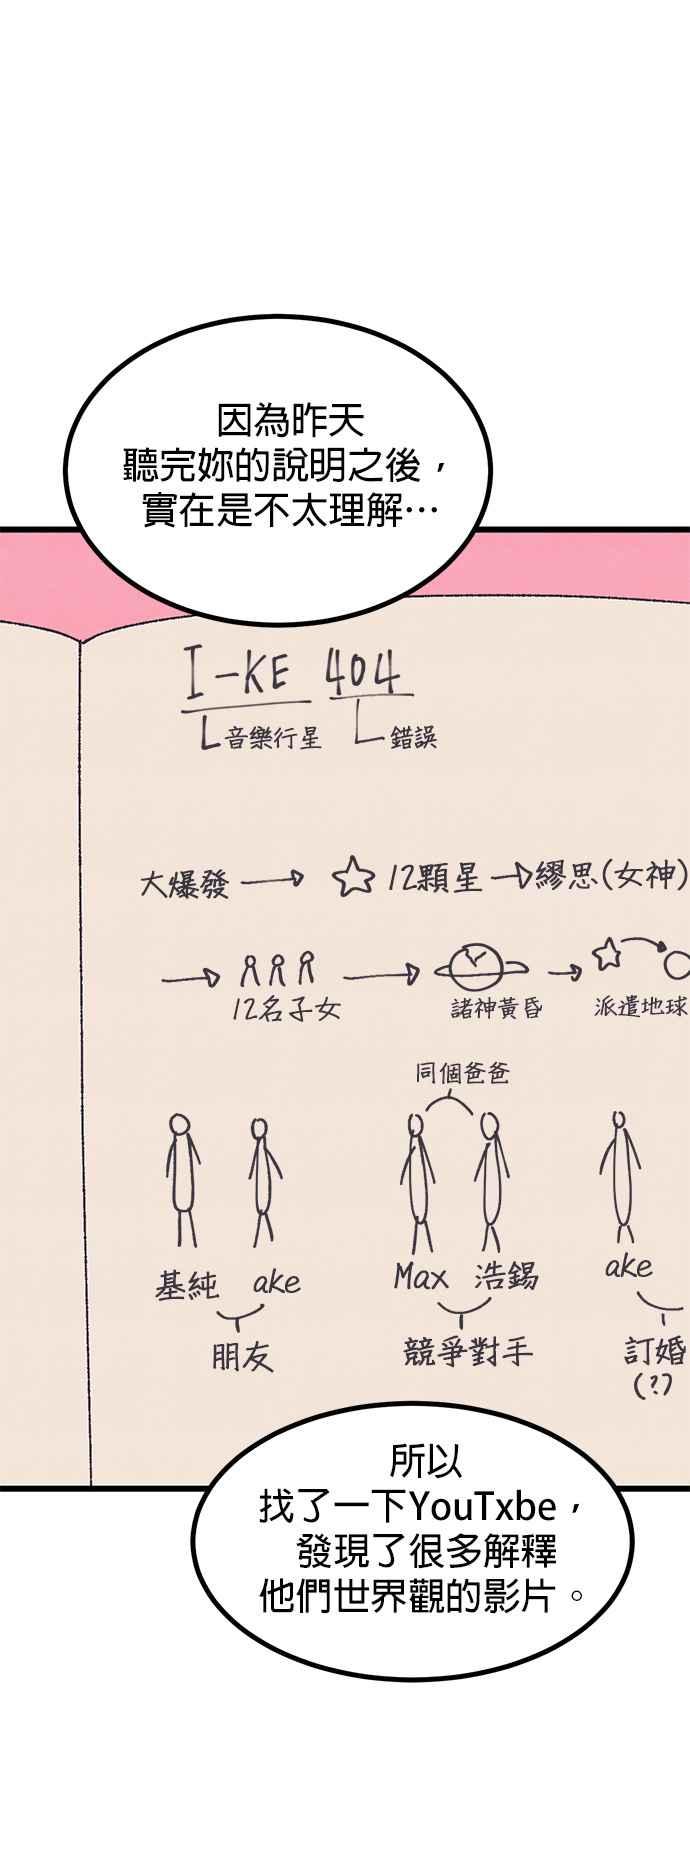 因為昨天
聽完妳的說明之後，
實在是不太理解…
I-KE 404
音樂行星 錯誤
大爆發 12顆星 繆思(女神)
12名子女 諸神黃昏 派遣地球
同個爸爸
基純 ake Max 浩錫 ake
朋友 競爭對手 訂婚
(?)
所以
找了一下YouTxbe，
發現了很多解釋
他們世界觀的影片。